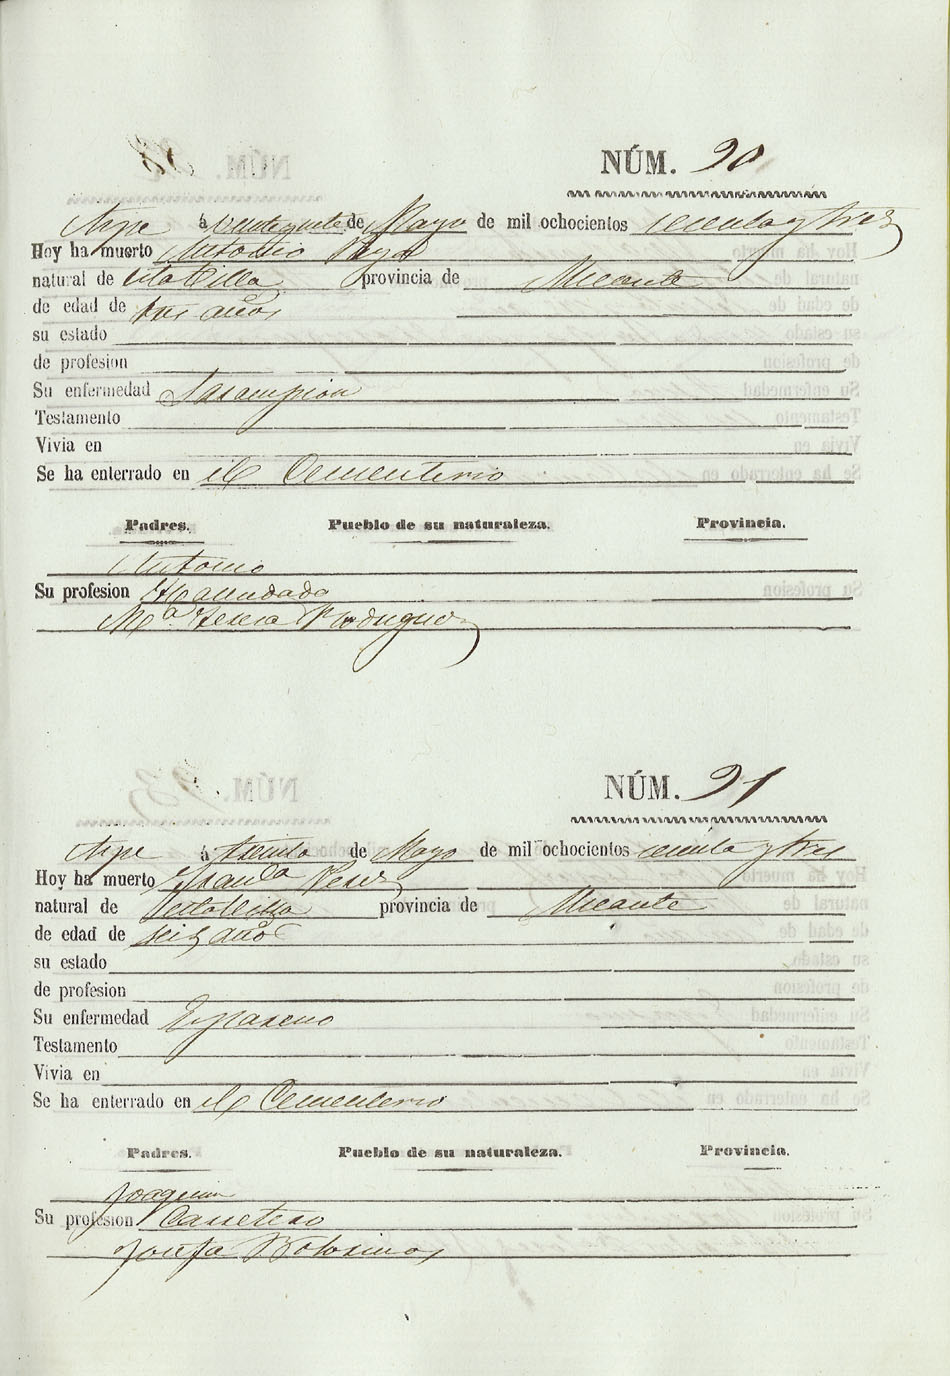 NÚM. 90
Aspe á veintequatro de Mayo de mil ochocientos sesenta y tres
Hoy ha muerto Antonio
natural de esta Villa provincia de Alicante
de edad de tres años
su estado
de profesion
Su enfermedad Sarampion
Testamento
Vivia en
Se ha enterrado en el Cementerio
Padres. Pueblo de su naturaleza. Provincia.
Antonio
Su profesion Hacendado
Mª Teresa Rodriguez
NÚM. 91
Aspe á treinta de Mayo de mil ochocientos sesenta y tres
Hoy ha muerto Perez
natural de esta Villa provincia de Alicante
de edad de seis años
su estado
de profesion
Su enfermedad
Testamento
Vivia en
Se ha enterrado en el Cementerio
Padres. Pueblo de su naturaleza. Provincia.
Joaquin
Su profesion Carretero
Josefa Botosinos